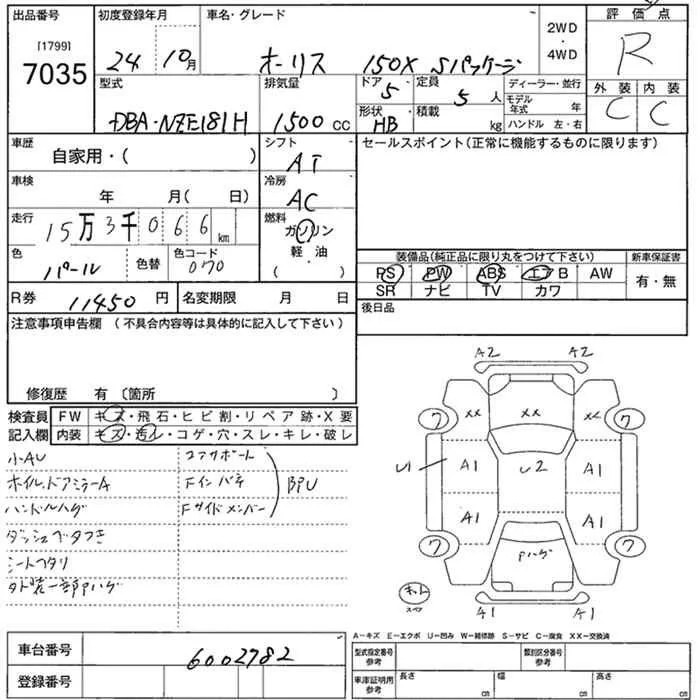 出品番号
[1799]
7035
初度登録年月
24 10月
車名・グレード
オーリス 150X Sパッケージ
2WD
・
4WD
評価点
R
型式
DBA-NZE181H
排気量
1500 CC
ドア
5
定員
5 人
形状
HB
積載
kg
ディーラー・並行
モデル年式 年
ハンドル 左・右
外装 内装
C C
車歴
自家用・( )
シフト
AT
セールスポイント(正常に機能するものに限ります)
車検
年 月( 日)
冷房
AC
走行
15万3千066km
燃料
ガソリン
軽・油
・
( )
色
パール
色替
色コード
070
装備品(純正品に限り丸をつけて下さい)
新車保証書
PS PW ABS エアB AW
SR ナビ TV カワ
有・無
R券
11450 円
名変期限 月 日
後日品
注意事項申告欄 (不具合内容等は具体的に記入して下さい)
修復歴 有 〔箇所 〕
検査員
記入欄
FW キズ・飛石・ヒビ割・リペア跡・X要
内装 キズ・汚レ・コゲ・穴・スレ・キレ・破レ
小AU
ホイル、ドアミラーA
ハンドルハゲ
ダッシュベタつき
シートヘタリ
外装一部Pハゲ
コアサポート
Fインパネ
Fサイドメンバー
BPU
A2 A2
ワ XX XX XX ワ
U1 A1 U2 A1
A1 A1
ワ Pハゲ ワ
A1 A1
A-キズ E-エクボ U-凹み W-補修跡 S-サビ C-腐食 XX-交換済
車台番号
6002782
登録番号
型式指定番号
参考
類別区分番号
参考
車庫証明用
参考
長さ cm
幅 cm
高さ cm